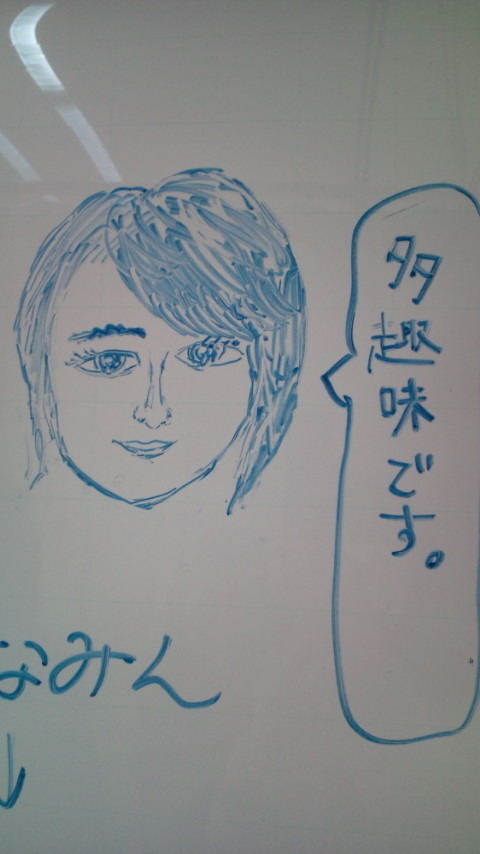 多趣味です。
なみん
↓